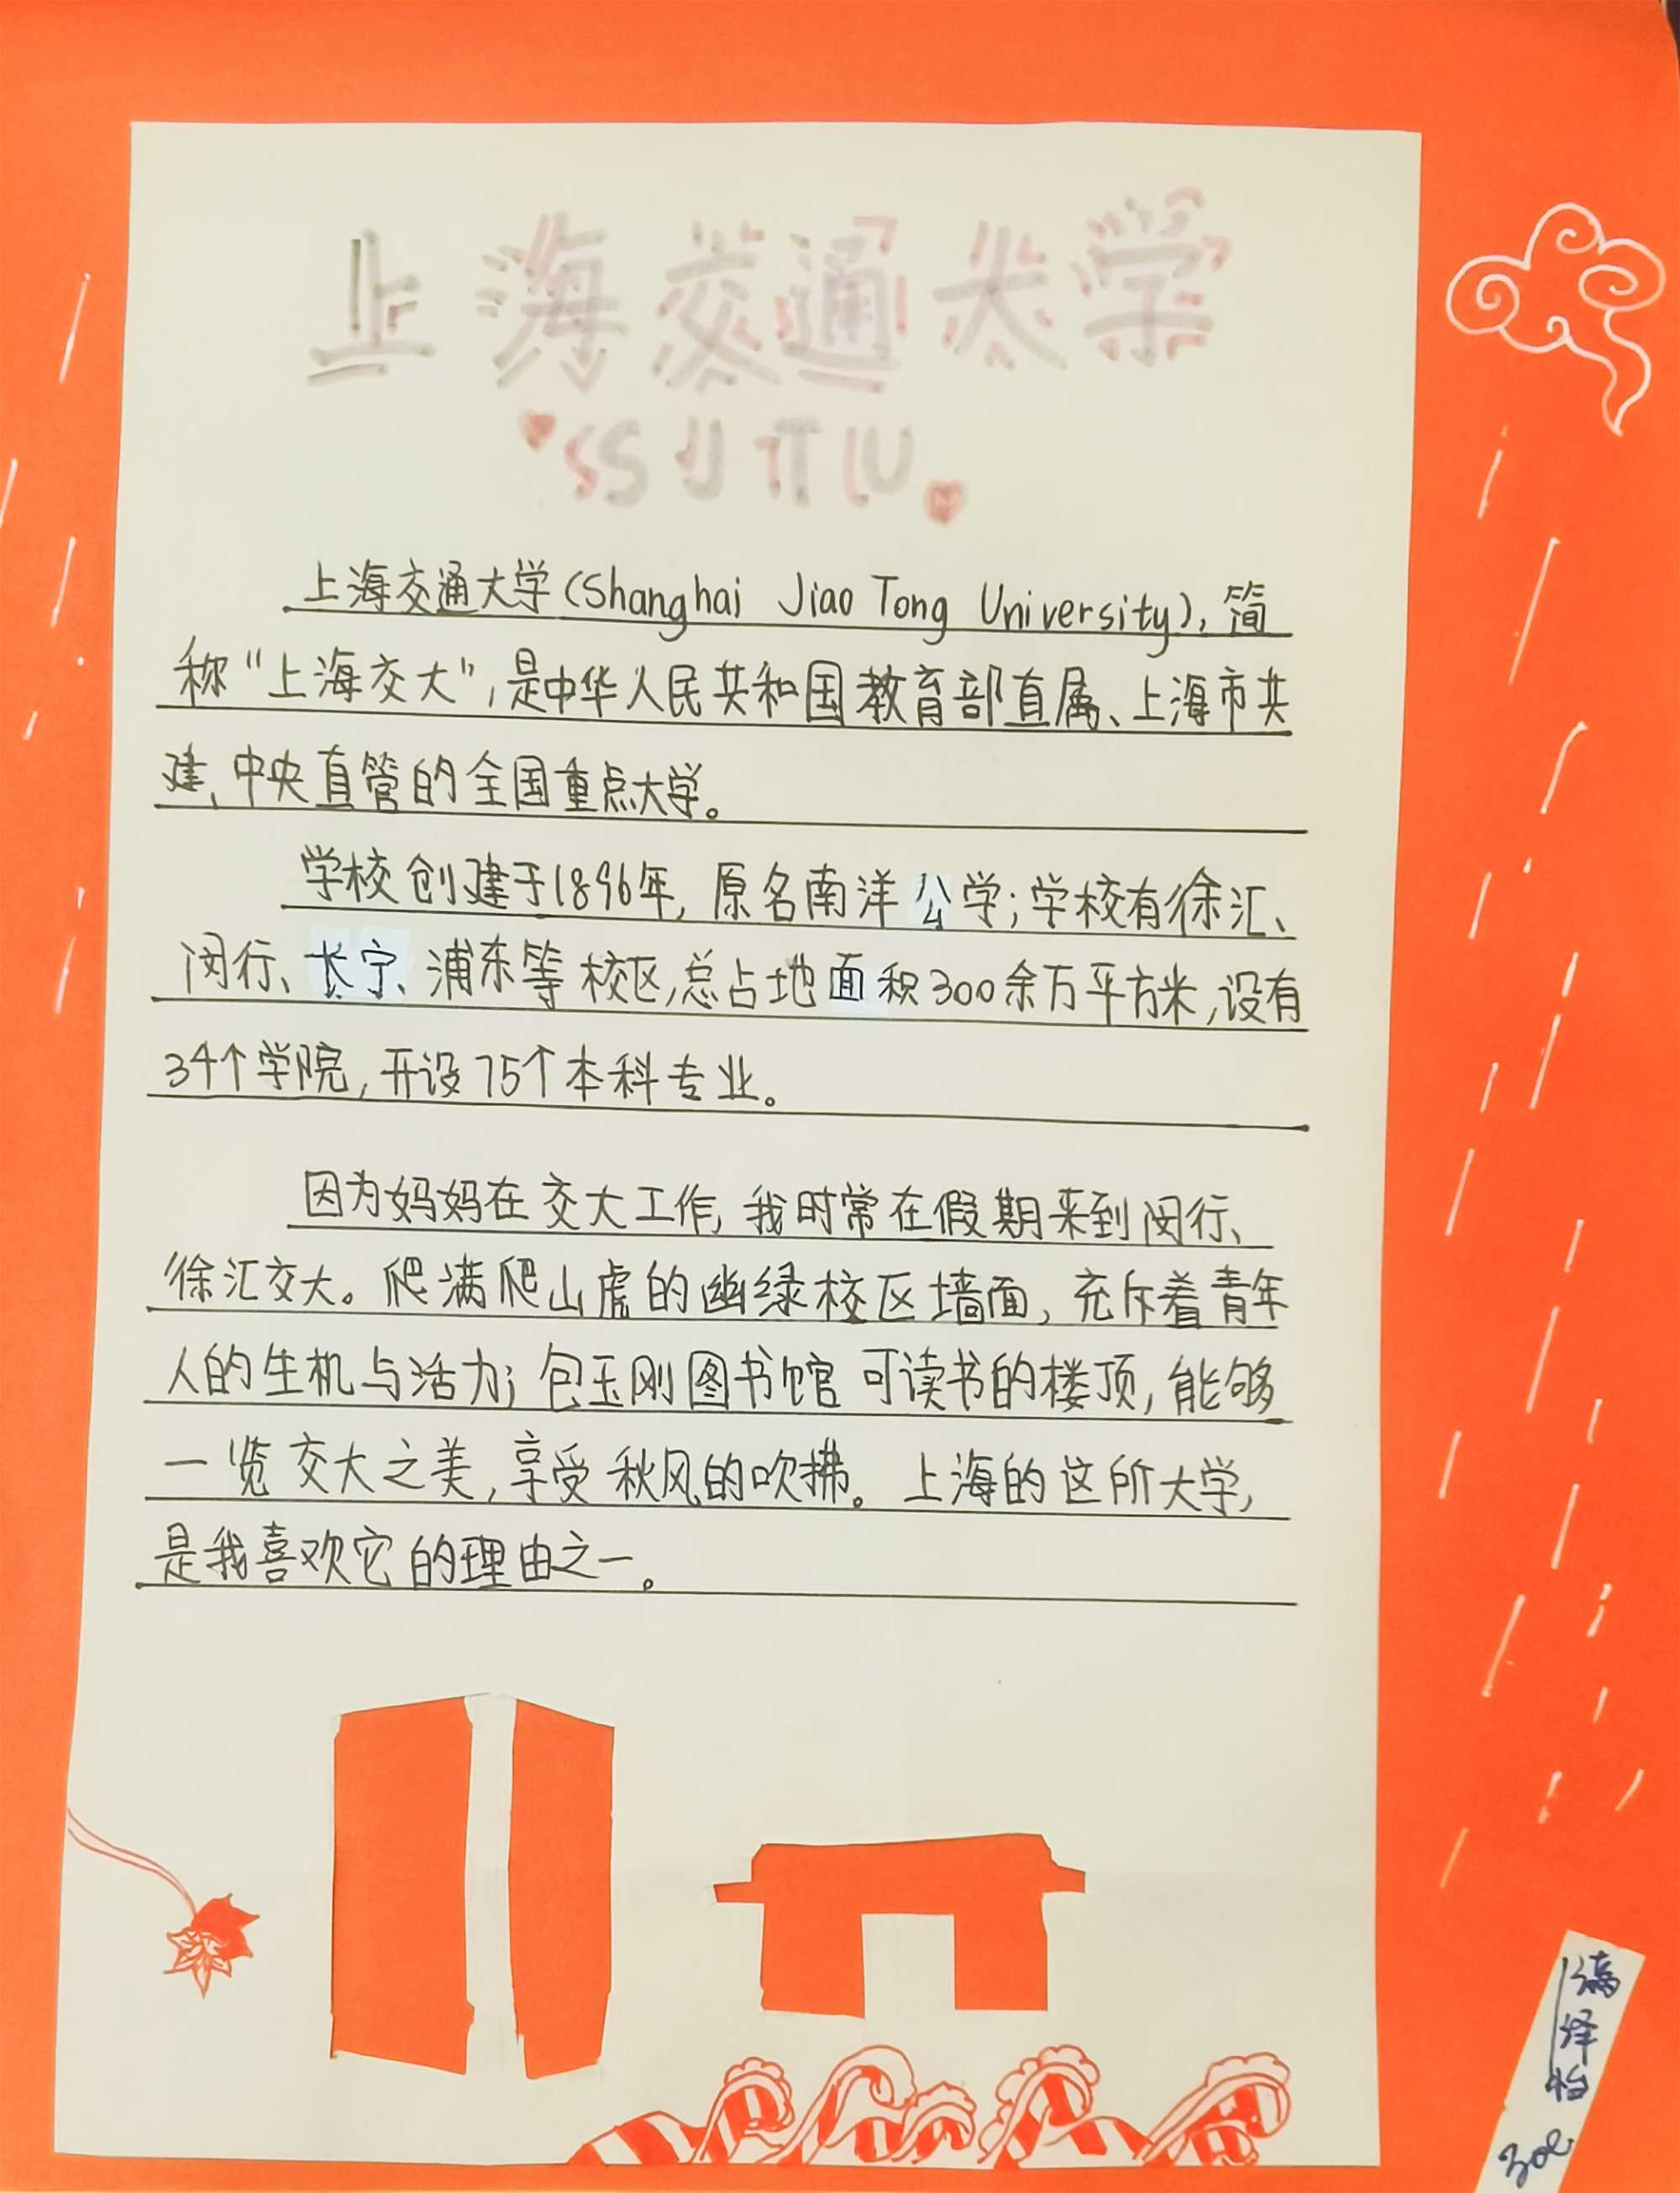 上海交通大学
SJTU
上海交通大学(Shanghai Jiao Tong University),简
称“上海交大”,是中华人民共和国教育部直属、上海市共
建、中央直管的全国重点大学。
学校创建于1896年,原名南洋公学;学校有徐汇、
闵行、长宁、浦东等校区,总占地面积300余万平方米,设有
34个学院,开设75个本科专业。
因为妈妈在交大工作,我时常在假期来到闵行、
徐汇交大。爬满爬山虎的幽绿校区墙面,充斥着青年
人的生机与活力;包玉刚图书馆可读书的楼顶,能够
一览交大之美,享受秋风的吹拂。上海的这所大学,
是我喜欢它的理由之一。
泽怡